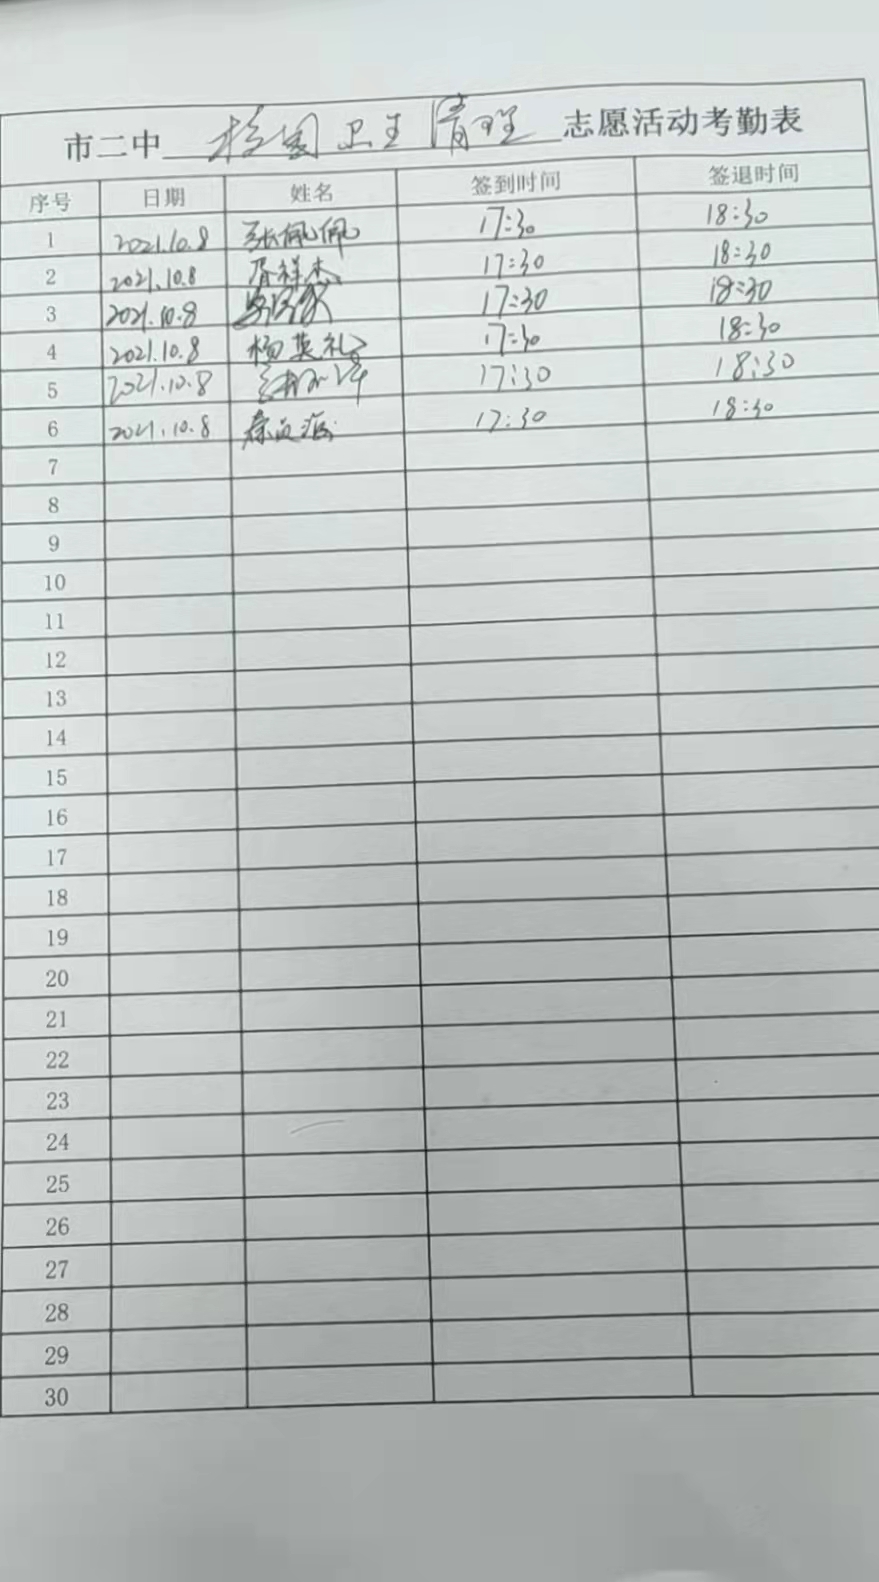 市二中 校园卫生清理 志愿活动考勤表
序号 日期 姓名 签到时间 签退时间
1 2021.10.8 张佩佩 17:30 18:30
2 2021.10.8 胥祥杰 17:30 18:30
3 2021.10.8 17:30 18:30
4 2021.10.8 杨英礼 17:30 18:30
5 2021.10.8 17:30 18:30
6 2021.10.8 17:30 18:30
7
8
9
10
11
12
13
14
15
16
17
18
19
20
21
22
23
24
25
26
27
28
29
30